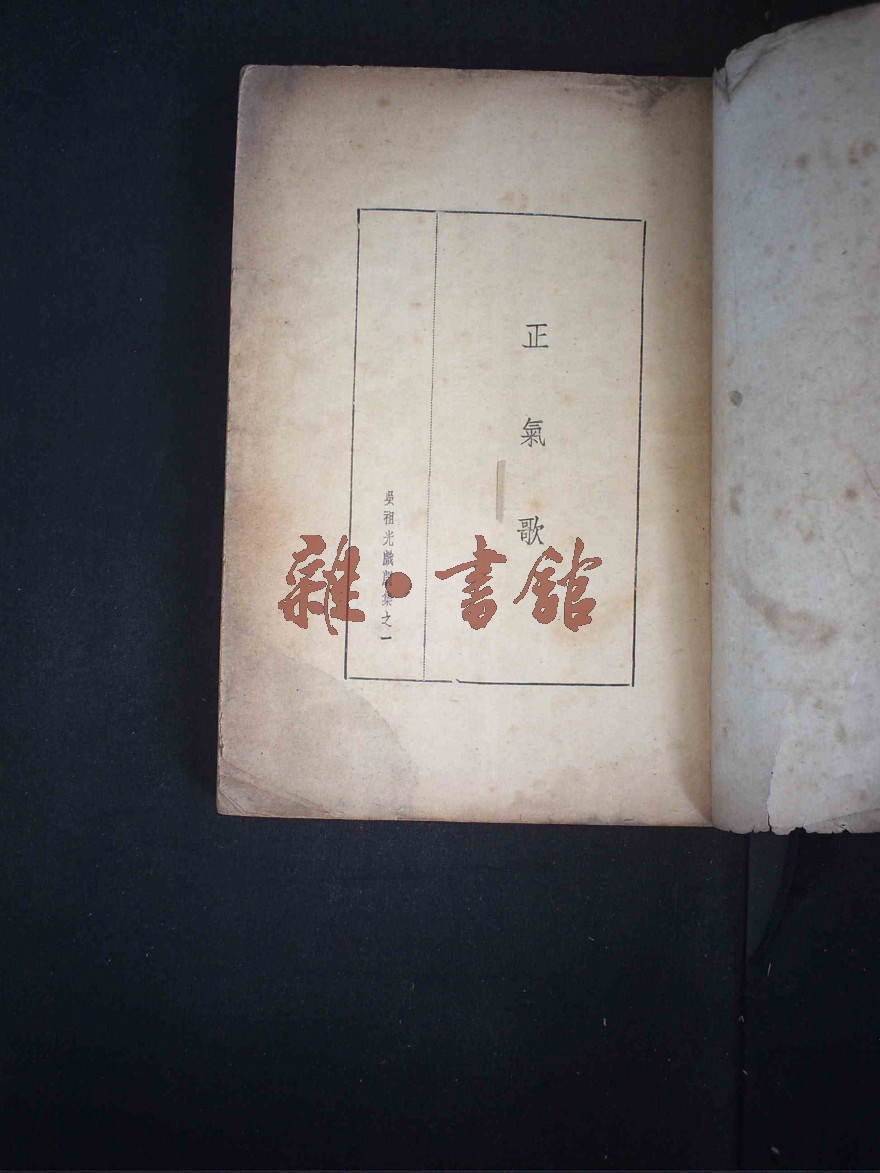 正氣歌
吳祖光戲劇集之一
雜·書館